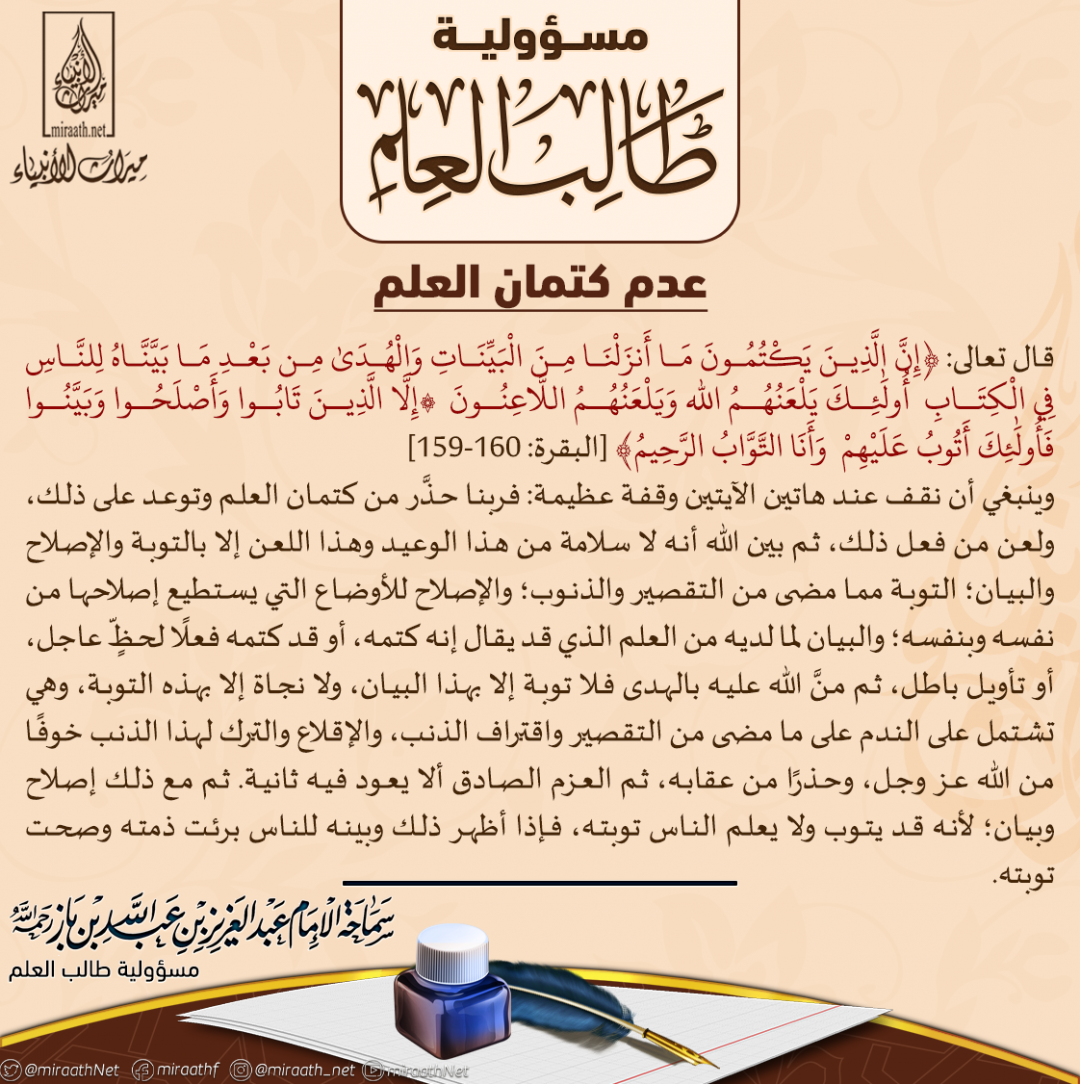 ميراث الأنبياء
miraath.net
ميراث الأنبياء
مسؤولية
طَالِبِ العِلمِ
عدم كتمان العلم
قال تعالى: ﴿إِنَّ الَّذِينَ يَكْتُمُونَ مَا أَنزَلْنَا مِنَ الْبَيِّنَاتِ وَالْهُدَىٰ مِن بَعْدِ مَا بَيَّنَّاهُ لِلنَّاسِ
فِي الْكِتَابِ أُولَٰئِكَ يَلْعَنُهُمُ الله وَيَلْعَنُهُمُ اللَّاعِنُونَ ۞إِلَّا الَّذِينَ تَابُوا وَأَصْلَحُوا وَبَيَّنُوا
فَأُولَٰئِكَ أَتُوبُ عَلَيْهِمْ وَأَنَا التَّوَّابُ الرَّحِيمُ﴾ [البقرة: 160-159]
وينبغي أن نقف عند هاتين الآيتين وقفة عظيمة: فربنا حذَّر من كتمان العلم وتوعد على ذلك،
ولعن من فعل ذلك، ثم بين الله أنه لا سلامة من هذا الوعيد وهذا اللعن إلا بالتوبة والإصلاح
والبيان؛ التوبة مما مضى من التقصير والذنوب؛ والإصلاح للأوضاع التي يستطيع إصلاحها من
نفسه وبنفسه؛ والبيان لما لديه من العلم الذي قد يقال إنه كتمه، أو قد كتمه فعلًا لحظٍّ عاجل،
أو تأويل باطل، ثم منَّ الله عليه بالهدى فلا توبة إلا بهذا البيان، ولا نجاة إلا بهذه التوبة، وهي
تشتمل على الندم على ما مضى من التقصير واقتراف الذنب، والإقلاع والترك لهذا الذنب خوفًا
من الله عز وجل، وحذرًا من عقابه، ثم العزم الصادق ألا يعود فيه ثانية. ثم مع ذلك إصلاح
وبيان؛ لأنه قد يتوب ولا يعلم الناس توبته، فإذا أظهر ذلك وبينه للناس برئت ذمته وصحت
توبته.
سَمَاحَةُ الإِمَامِ عَبْدِ العَزِيزِ بْنِ عَبْدِ اللَّهِ بْنِ بَازٍ رَحِمَهُ اللَّهُ
مسؤولية طالب العلم
@miraathNet miraathf @miraath_net miraathNet